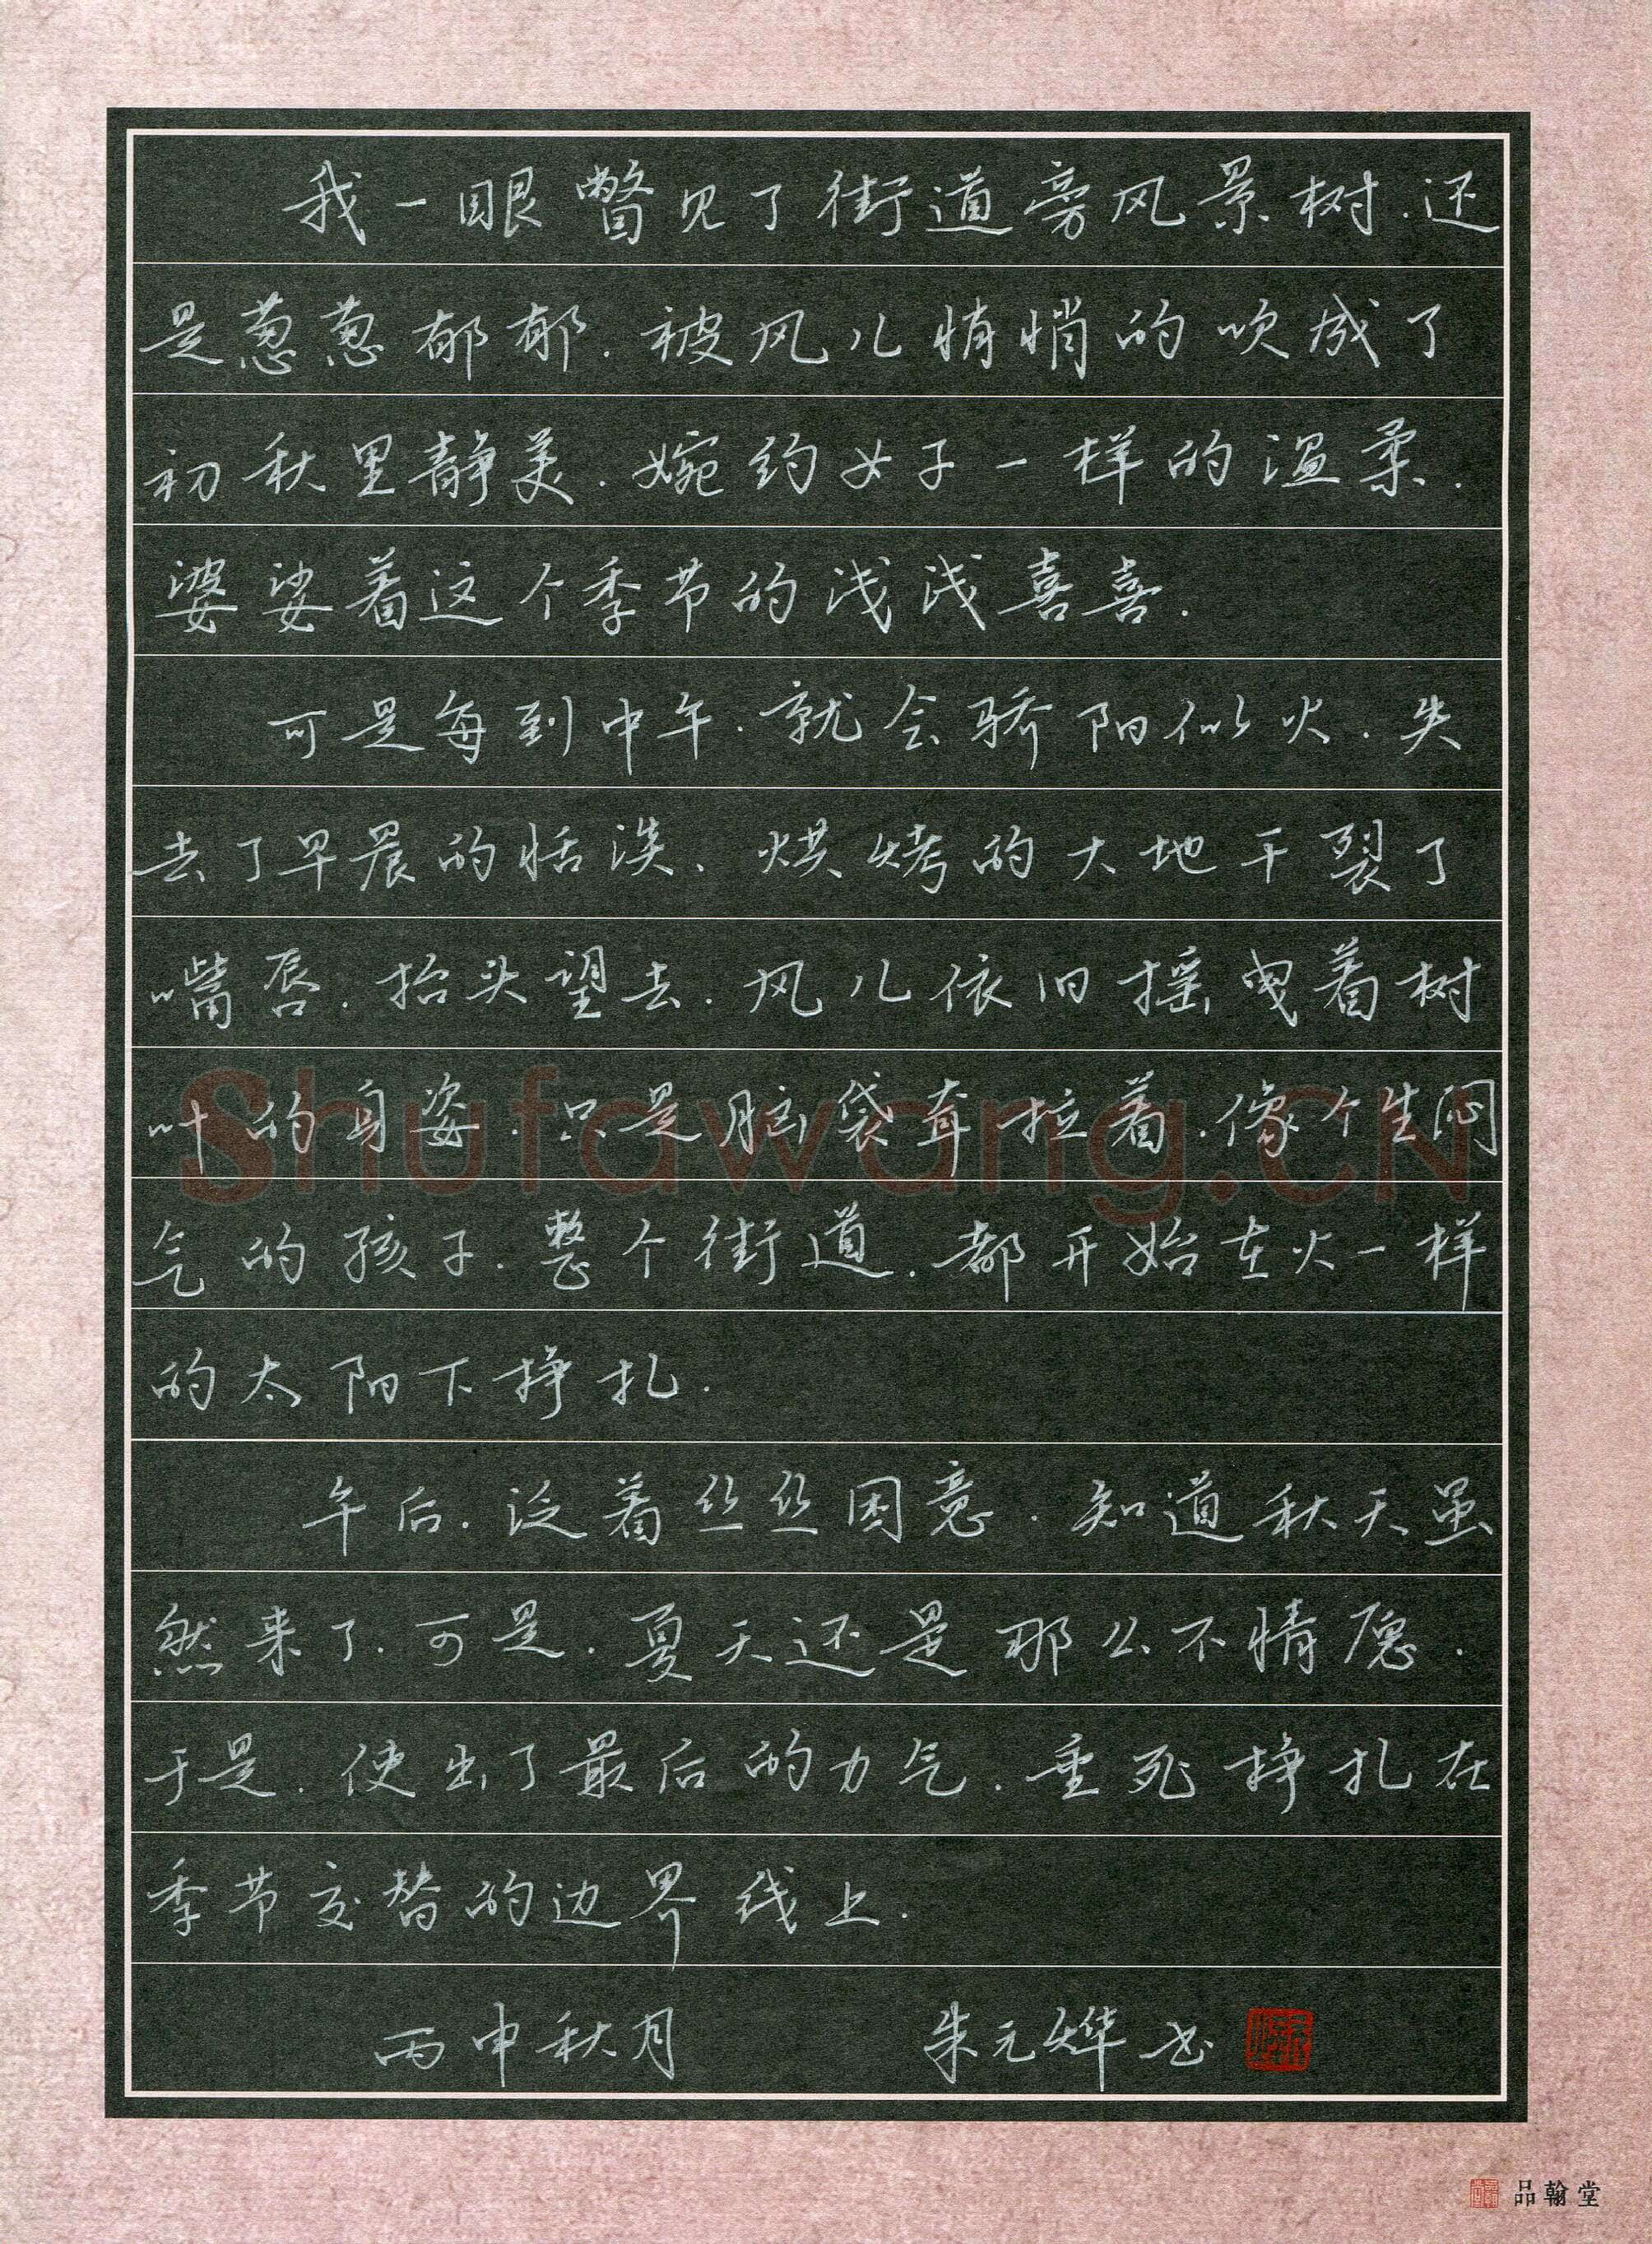 我一眼瞥见了街道旁风景树.还
是葱葱郁郁.被风儿悄悄的吹成了
初秋里静美.婉约女子一样的温柔.
婆娑着这个季节的浅浅喜喜.
可是每到中午.就会骄阳似火.失
去了早晨的恬淡、烘烤的大地干裂了
嘴唇.抬头望去.风儿依旧摇曳着树
叶的身姿.只是脑袋耷拉着.像个生闷
气的孩子.整个街道.都开始在火一样
的太阳下挣扎.
午后.泛着丝丝困意.知道秋天虽
然来了.可是.夏天还是那么不情愿.
于是.使出了最后的力气.垂死挣扎在
季节交替的边界线上.
丙申秋月 朱元烨书
Shufawang.CN
品翰堂